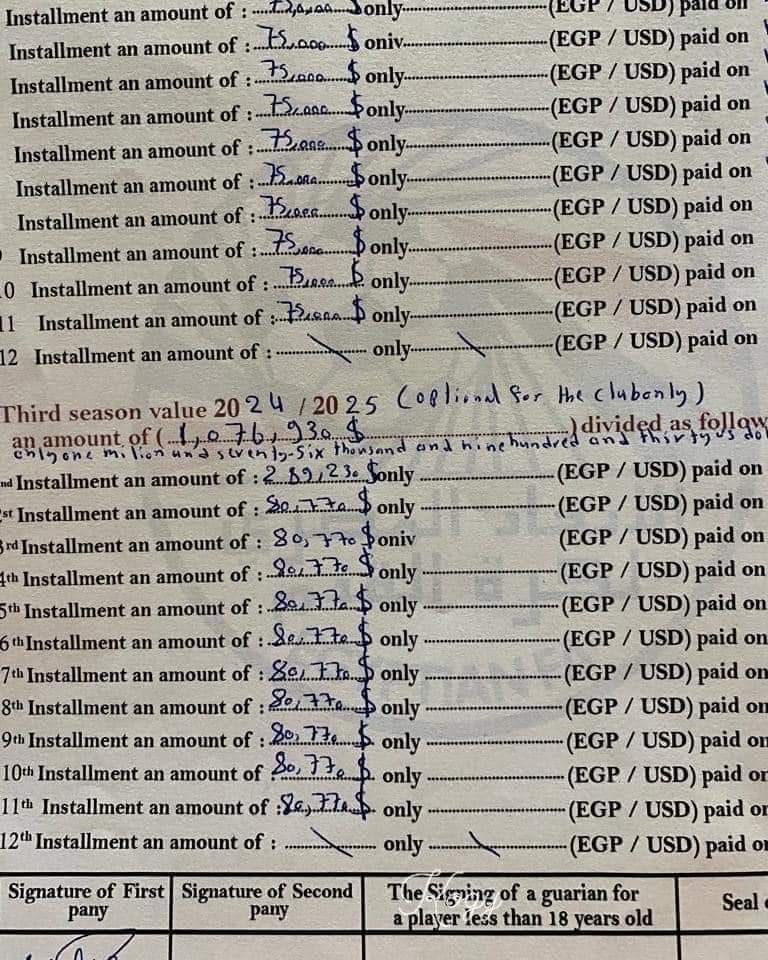 Installment an amount of : $ only (EGP / USD) paid on
Installment an amount of : 75,000 $ oniv (EGP / USD) paid on
Installment an amount of : 75,000 $ only (EGP / USD) paid on
Installment an amount of : 75,000 $ only (EGP / USD) paid on
Installment an amount of : 75,000 $ only (EGP / USD) paid on
Installment an amount of : 75,000 $ only (EGP / USD) paid on
Installment an amount of : 75,000 $ only (EGP / USD) paid on
Installment an amount of : 75,000 $ only (EGP / USD) paid on
0 Installment an amount of : 75,000 $ only (EGP / USD) paid on
11 Installment an amount of : 75,000 $ only (EGP / USD) paid on
12 Installment an amount of : only (EGP / USD) paid on
Third season value 2024 / 2025 (optional for the club only)
an amount of ( 1,076,930 $ ) divided as follow
only one million and seventy-six thousand and nine hundred and thirty us dol
nd Installment an amount of : 269,230 $ only (EGP / USD) paid on
st Installment an amount of : 80,770 $ only (EGP / USD) paid on
3rd Installment an amount of : 80,770 $ oniv (EGP / USD) paid on
4th Installment an amount of : 80,770 $ only (EGP / USD) paid on
5th Installment an amount of : 80,770 $ only (EGP / USD) paid on
6th Installment an amount of : 80,770 $ only (EGP / USD) paid on
7th Installment an amount of : 80,770 $ only (EGP / USD) paid on
8th Installment an amount of : 80,770 $ only (EGP / USD) paid on
9th Installment an amount of : 80,770 $ only (EGP / USD) paid on
10th Installment an amount of 80,770 $ only (EGP / USD) paid on
11th Installment an amount of : 80,770 $ only (EGP / USD) paid on
12th Installment an amount of : only (EGP / USD) paid on
Signature of First pany
Signature of Second pany
The Signing of a guarian for
a player less than 18 years old
Seal